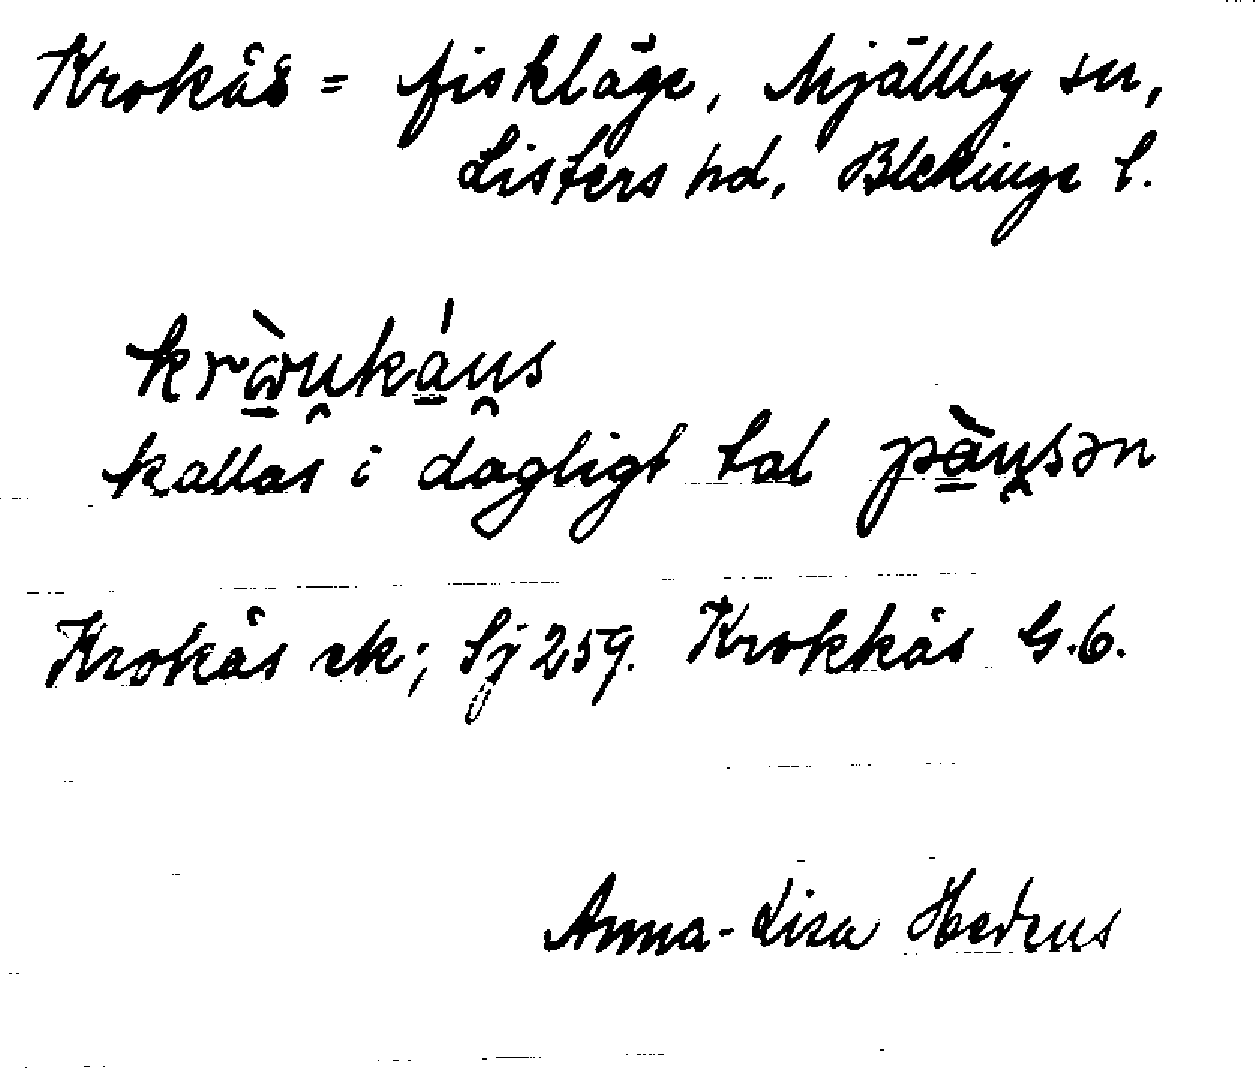 Krokås = fiskläge, Mjällby sn,
Listers hd, Blekinge l.
krὼ̲u̯ká̲u̯s
kallas i dagligt tal pà̲u̯sən
Krokås ek; Sj 259. Krokkås G.6.
Anna-Lisa Hedens